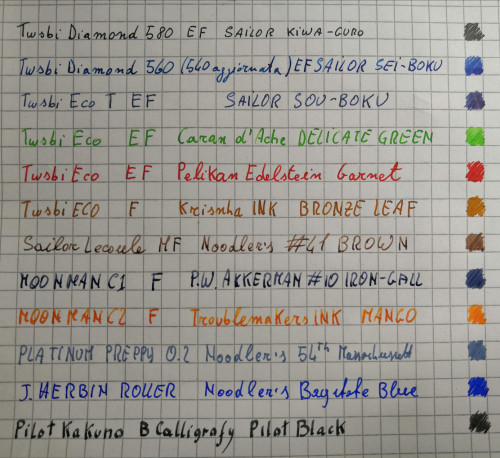 Twsbi Diamond 580 EF SAILOR KIWA-GURO
Twsbi Diamond 560 (540 aggiornata) EF SAILOR SEI-BOKU
Twsbi Eco T EF SAILOR SOU-BOKU
Twsbi Eco EF Caran d'Ache DELICATE GREEN
Twsbi Eco EF Pelikan Edelstein Garnet
Twsbi ECO F Krisnha INK BRONZE LEAF
Sailor Lecoule MF Noodler's #41 BROWN
MOONMAN C1 F P.W. AKKERMAN #10 IRON-GALL
MOONMAN C2 F Troublemakers INK MANGO
PLATINUM PREPPY 0.2 Noodler's 54th
J. HERBIN ROLLER Noodler's Blue
Pilot Kakuno B Calligrafy Pilot Black